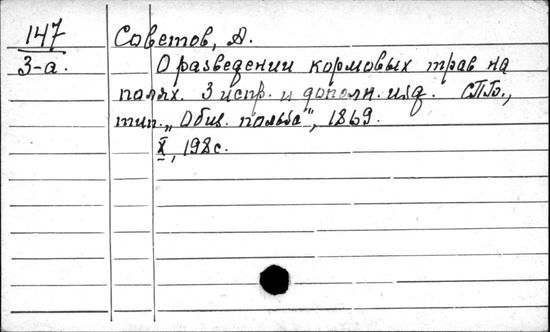 147 Советов, А.
3-а. О разведении кормовых трав на
полях. 3 испр. и дополн. изд. СПб.,
тип. „Общ. польза", 1869.
X, 198с.